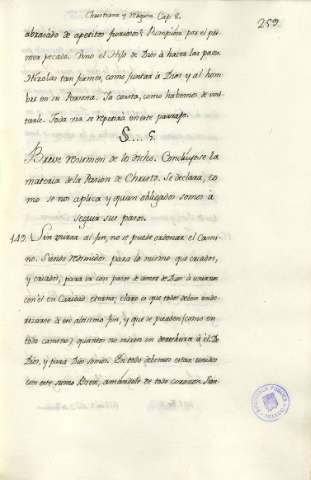 Christiana y Mystica Cap. 8.
259
abrasado de apetitos furiosos. Rompiola por el pri-
mera pecado. Vino el Hijo de Dios à hacer las paces.
Hizolas tan firmes, como juntar à Dios y al hom-
bre en su Persona. Ya consta, como habemos de
Toda no se repetirà en este parrafo.
§.... 5.
Breve resumen de lo dicho. Concluyese la
materia de la Pasion de Christo. Se declara, co
mo se nos aplica y quan obligados somos à
seguir sus pasos.
149. Sin mirar al fin, no se puede ordenar el Cami-
no. Siendo redimidos para lo mismo que criados,
y criados, para ir con pasos de amor de Dios à unirnos
con el en Caridad eterna; claro es que todos deben
de un altisimo fin, y que se pierden (como en
todo camino) quantos no miren en derechura à el. De
Dios, y para Dios somos. En todo debemos estar unidos
con este sumo Bien, amandole de todo corazon. Sin